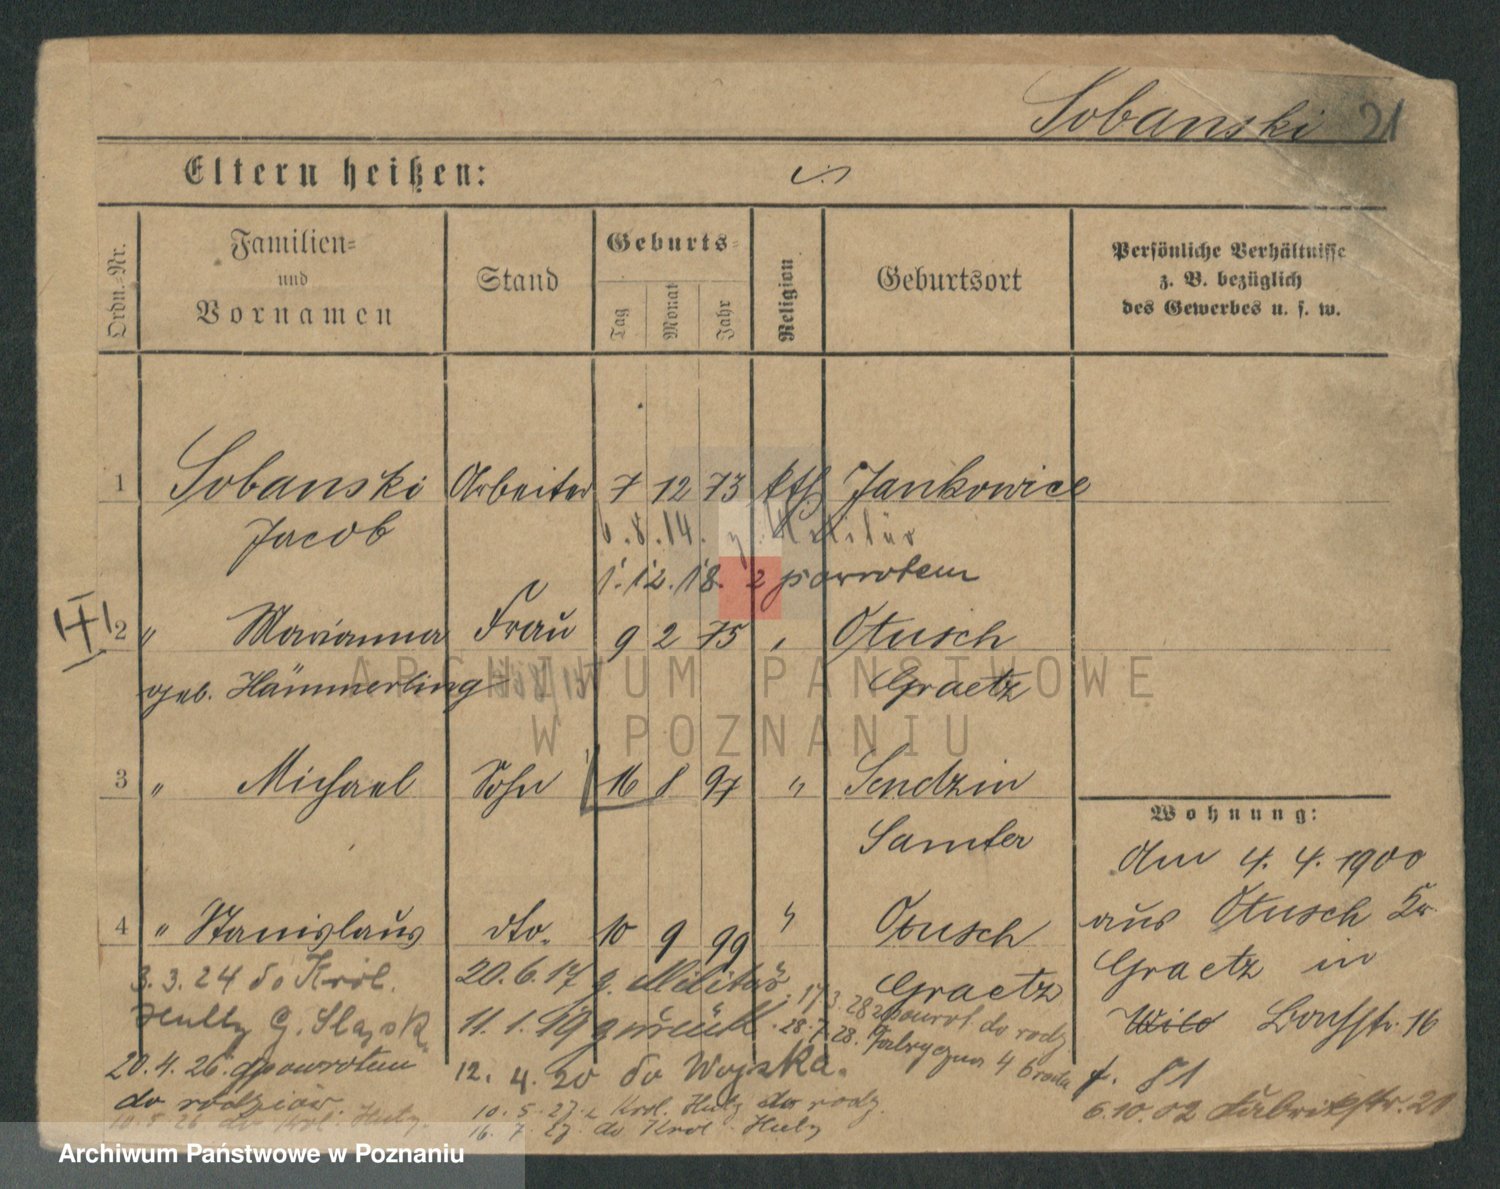 Sobanski 21
Eltern heißen:
Ordn.-Nr.
Familien-
und
Vornamen
Stand
Geburts-
Tag
Monat
Jahr
Religion
Geburtsort
Persönliche Verhältnisse
z. B. bezüglich
des Gewerbes u. s. w.
1 Sobanski Arbeiter 7 12 73 kth. Jankowice
Jacob
6.8.14. z. Militär
1.12.18. z powrotem
2 " Marianna Frau 9 2 75 " Otusch
geb. Hämmerling Graetz
3 " Michael Sohn 16 8 97 " Sendzin
Samter
4 " Stanislaus dto. 10 9 99 " Otusch
Graetz
3.3.24 do Król.
Huty G. Sląsk.
20.4.26. z powrotem
do rodziców
10.5.26 do Krol. Huty.
20.6.17 z. Militär
11.1.19 zurück
12.4.20 do Wojska.
10.5.27 z Krol. Huty do rodz.
16.7.27 do Krol. Huty
17.3.28 z powrot do rodz
28.7.28. Fabryczna 4
Wohnung:
Am 4.4.1900
aus Otusch Kr.
Graetz in
Wilo
16
81
6.10.02 Fabrikstr. 21
ARCHIWUM PAŃSTWOWE
W POZNANIU
Archiwum Państwowe w Poznaniu